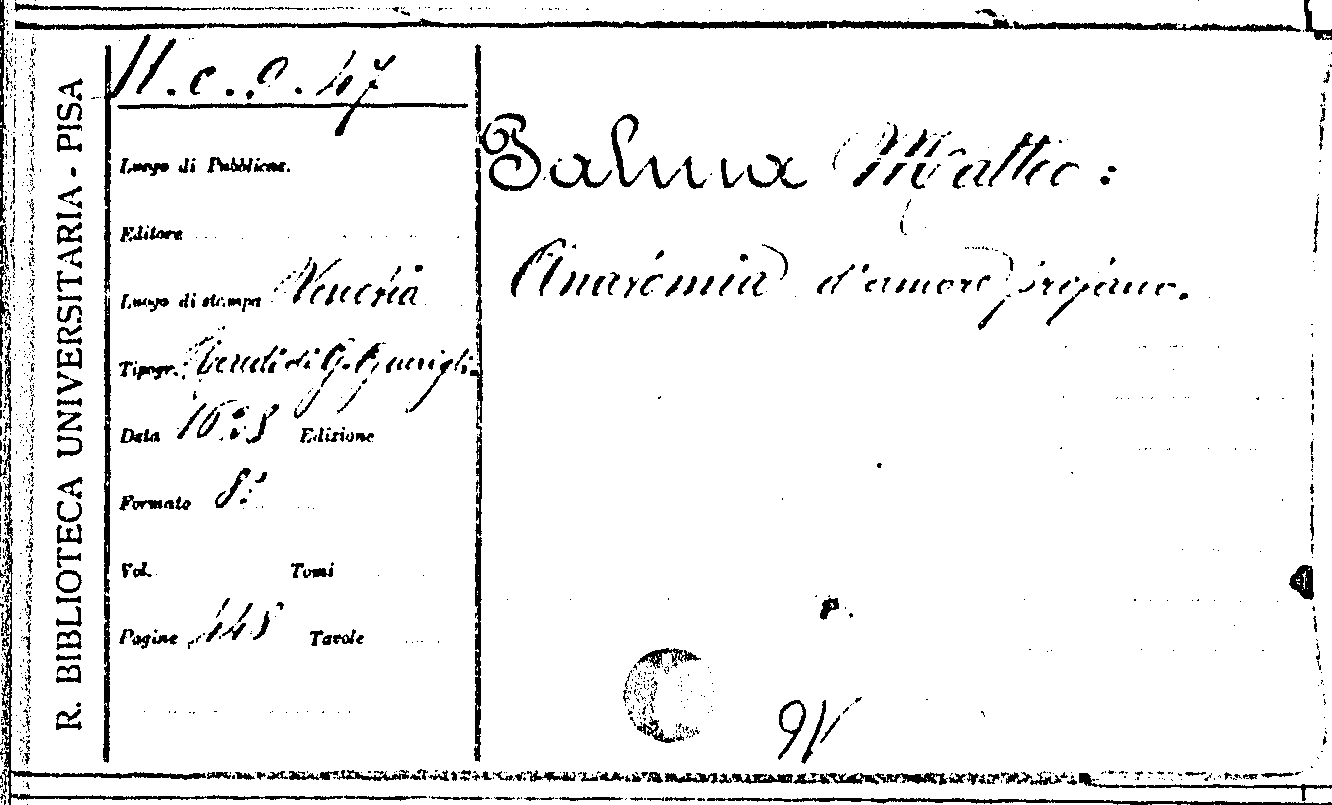 R. BIBLIOTECA UNIVERSITARIA - PISA
H. c. 9. 47
Luogo di Pubblicaz.
Editore
Luogo di stampa Venezia
Tipogr. Eredi di G. Guerigli.
Data 1623 Edizione
Formato 8º
Vol. Tomi
Pagine 448 Tavole
Palma Matteo:
Anatomia d'amore profano.
P.